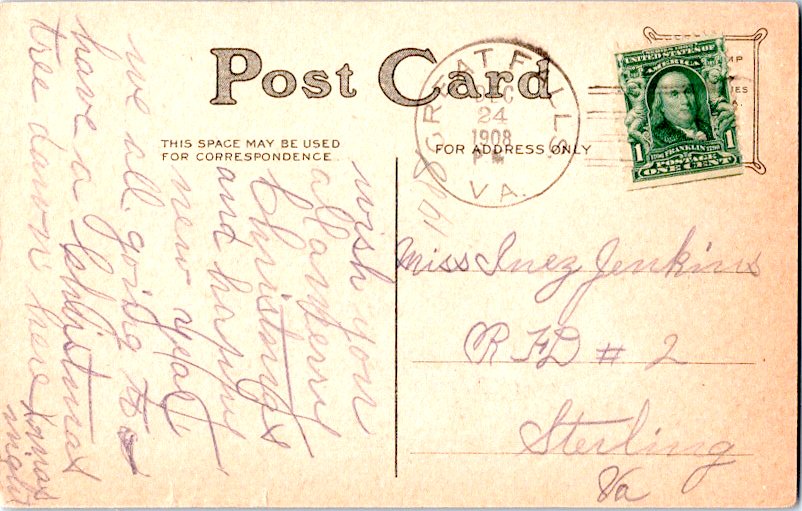 Post Card
THIS SPACE MAY BE USED
FOR CORRESPONDENCE
FOR ADDRESS ONLY
GREAT FALLS
DEC
24
1908
PM
VA.
UNITED STATES OF
AMERICA
1 1
FRANKLIN
POSTAGE
ONE CENT
wish you
all a merry
Christmas
and happy
new year
we all going to
have a Christmas
tree dawn here Xmas
night
Miss Inez Jenkins
RFD # 2
Sterling
Va